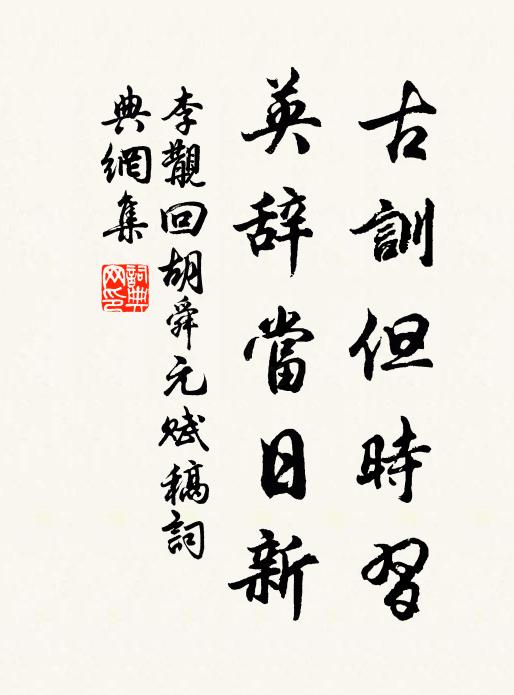 古訓但時習
英辞當日新
李覯回胡舜元賦稿詞
典網集
詞典網印